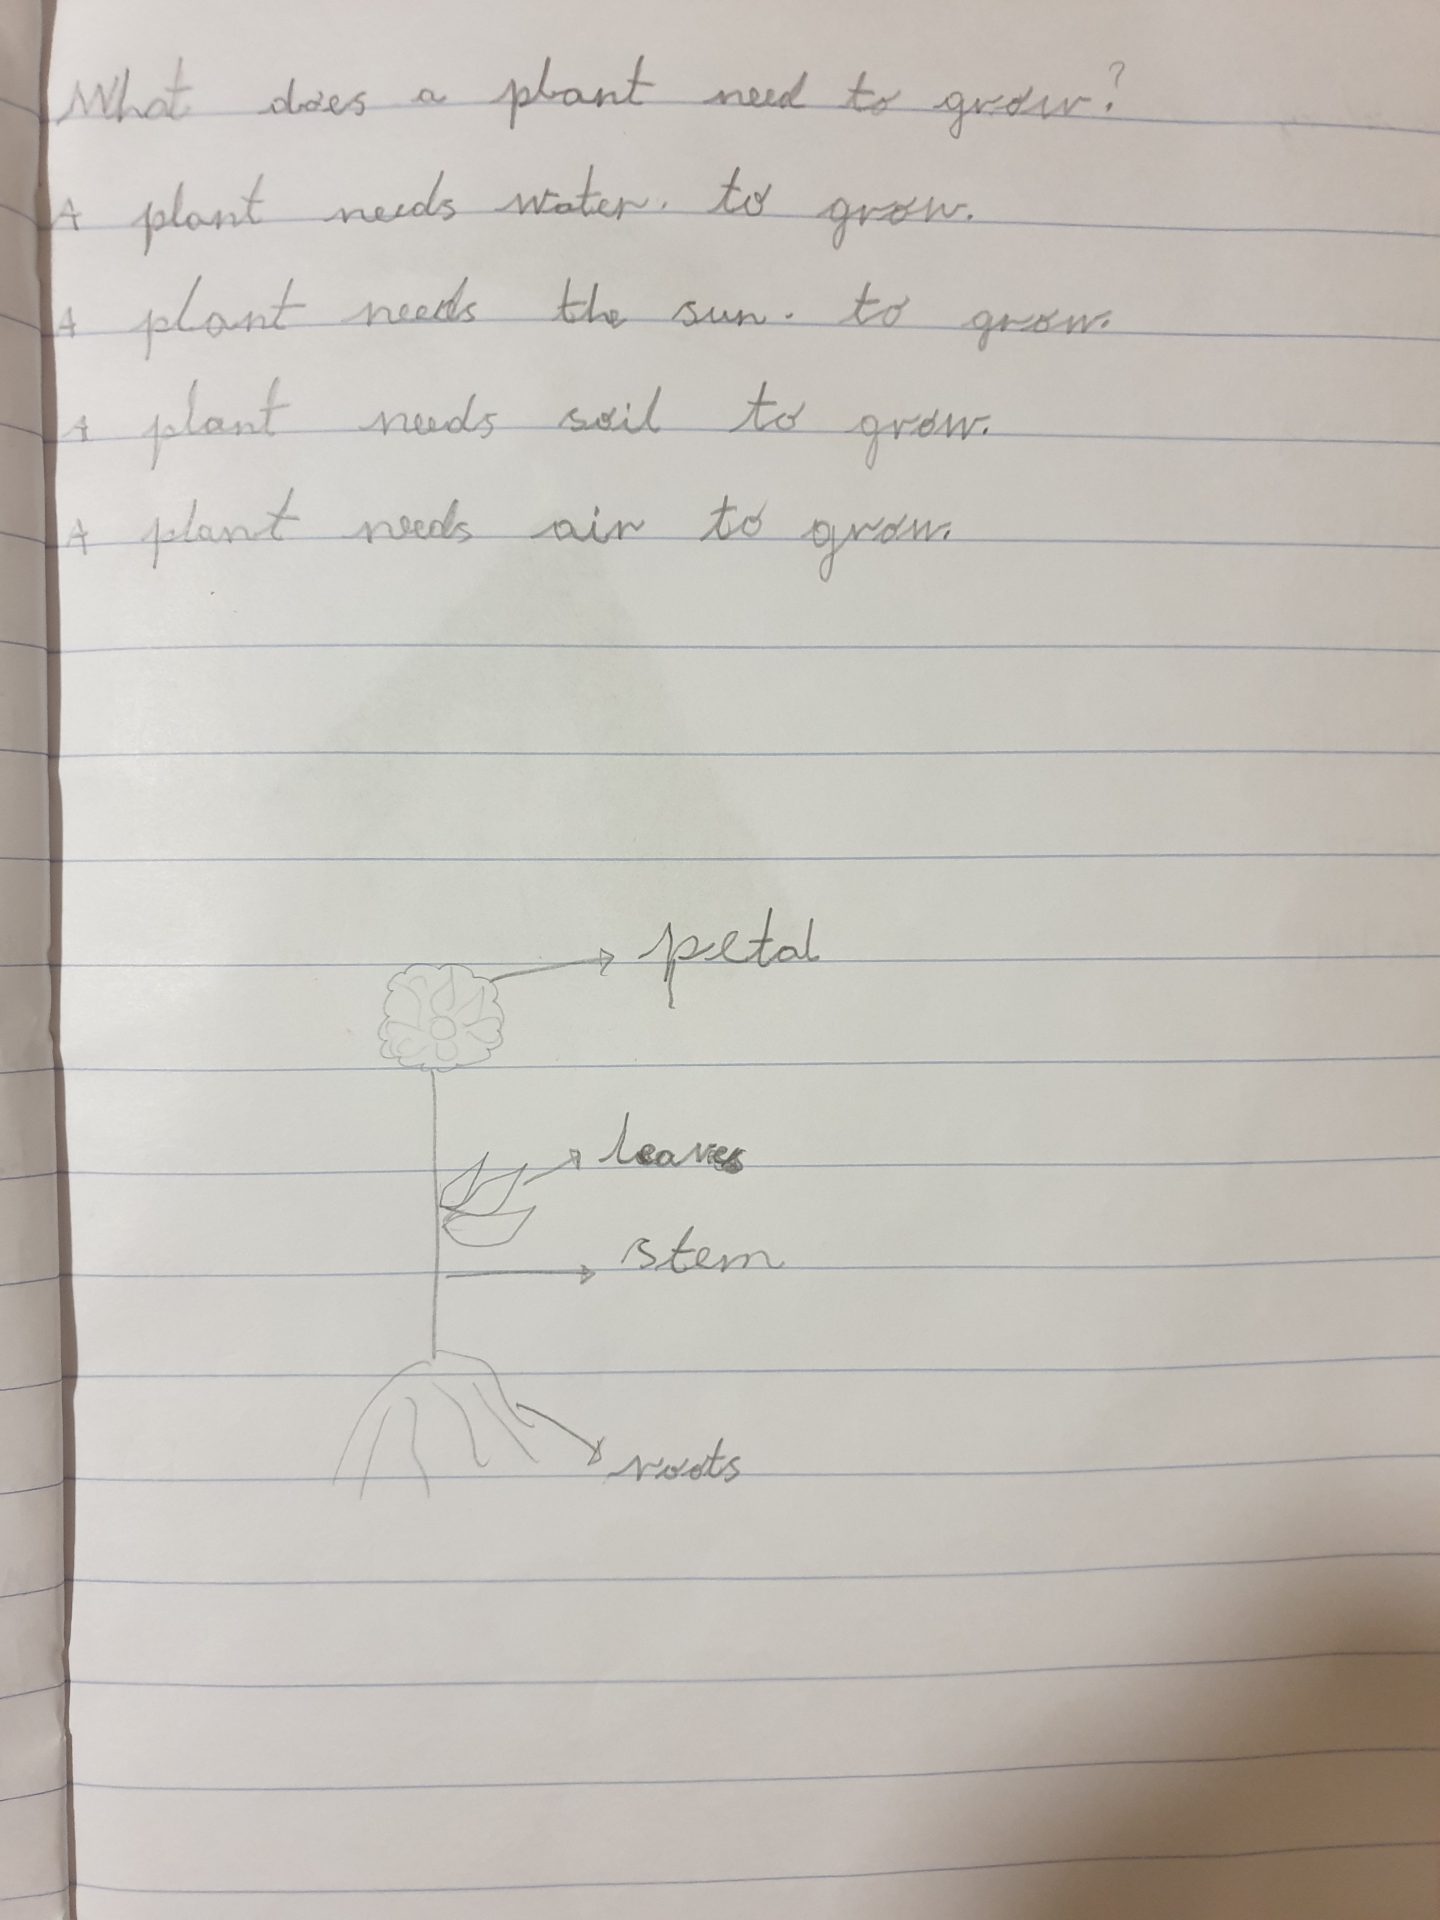 What does a plant need to grow?
A plant needs water. to grow.
A plant needs the sun. to grow.
A plant needs soil to grow.
A plant needs air to grow.
petal
leaves
stem
roots